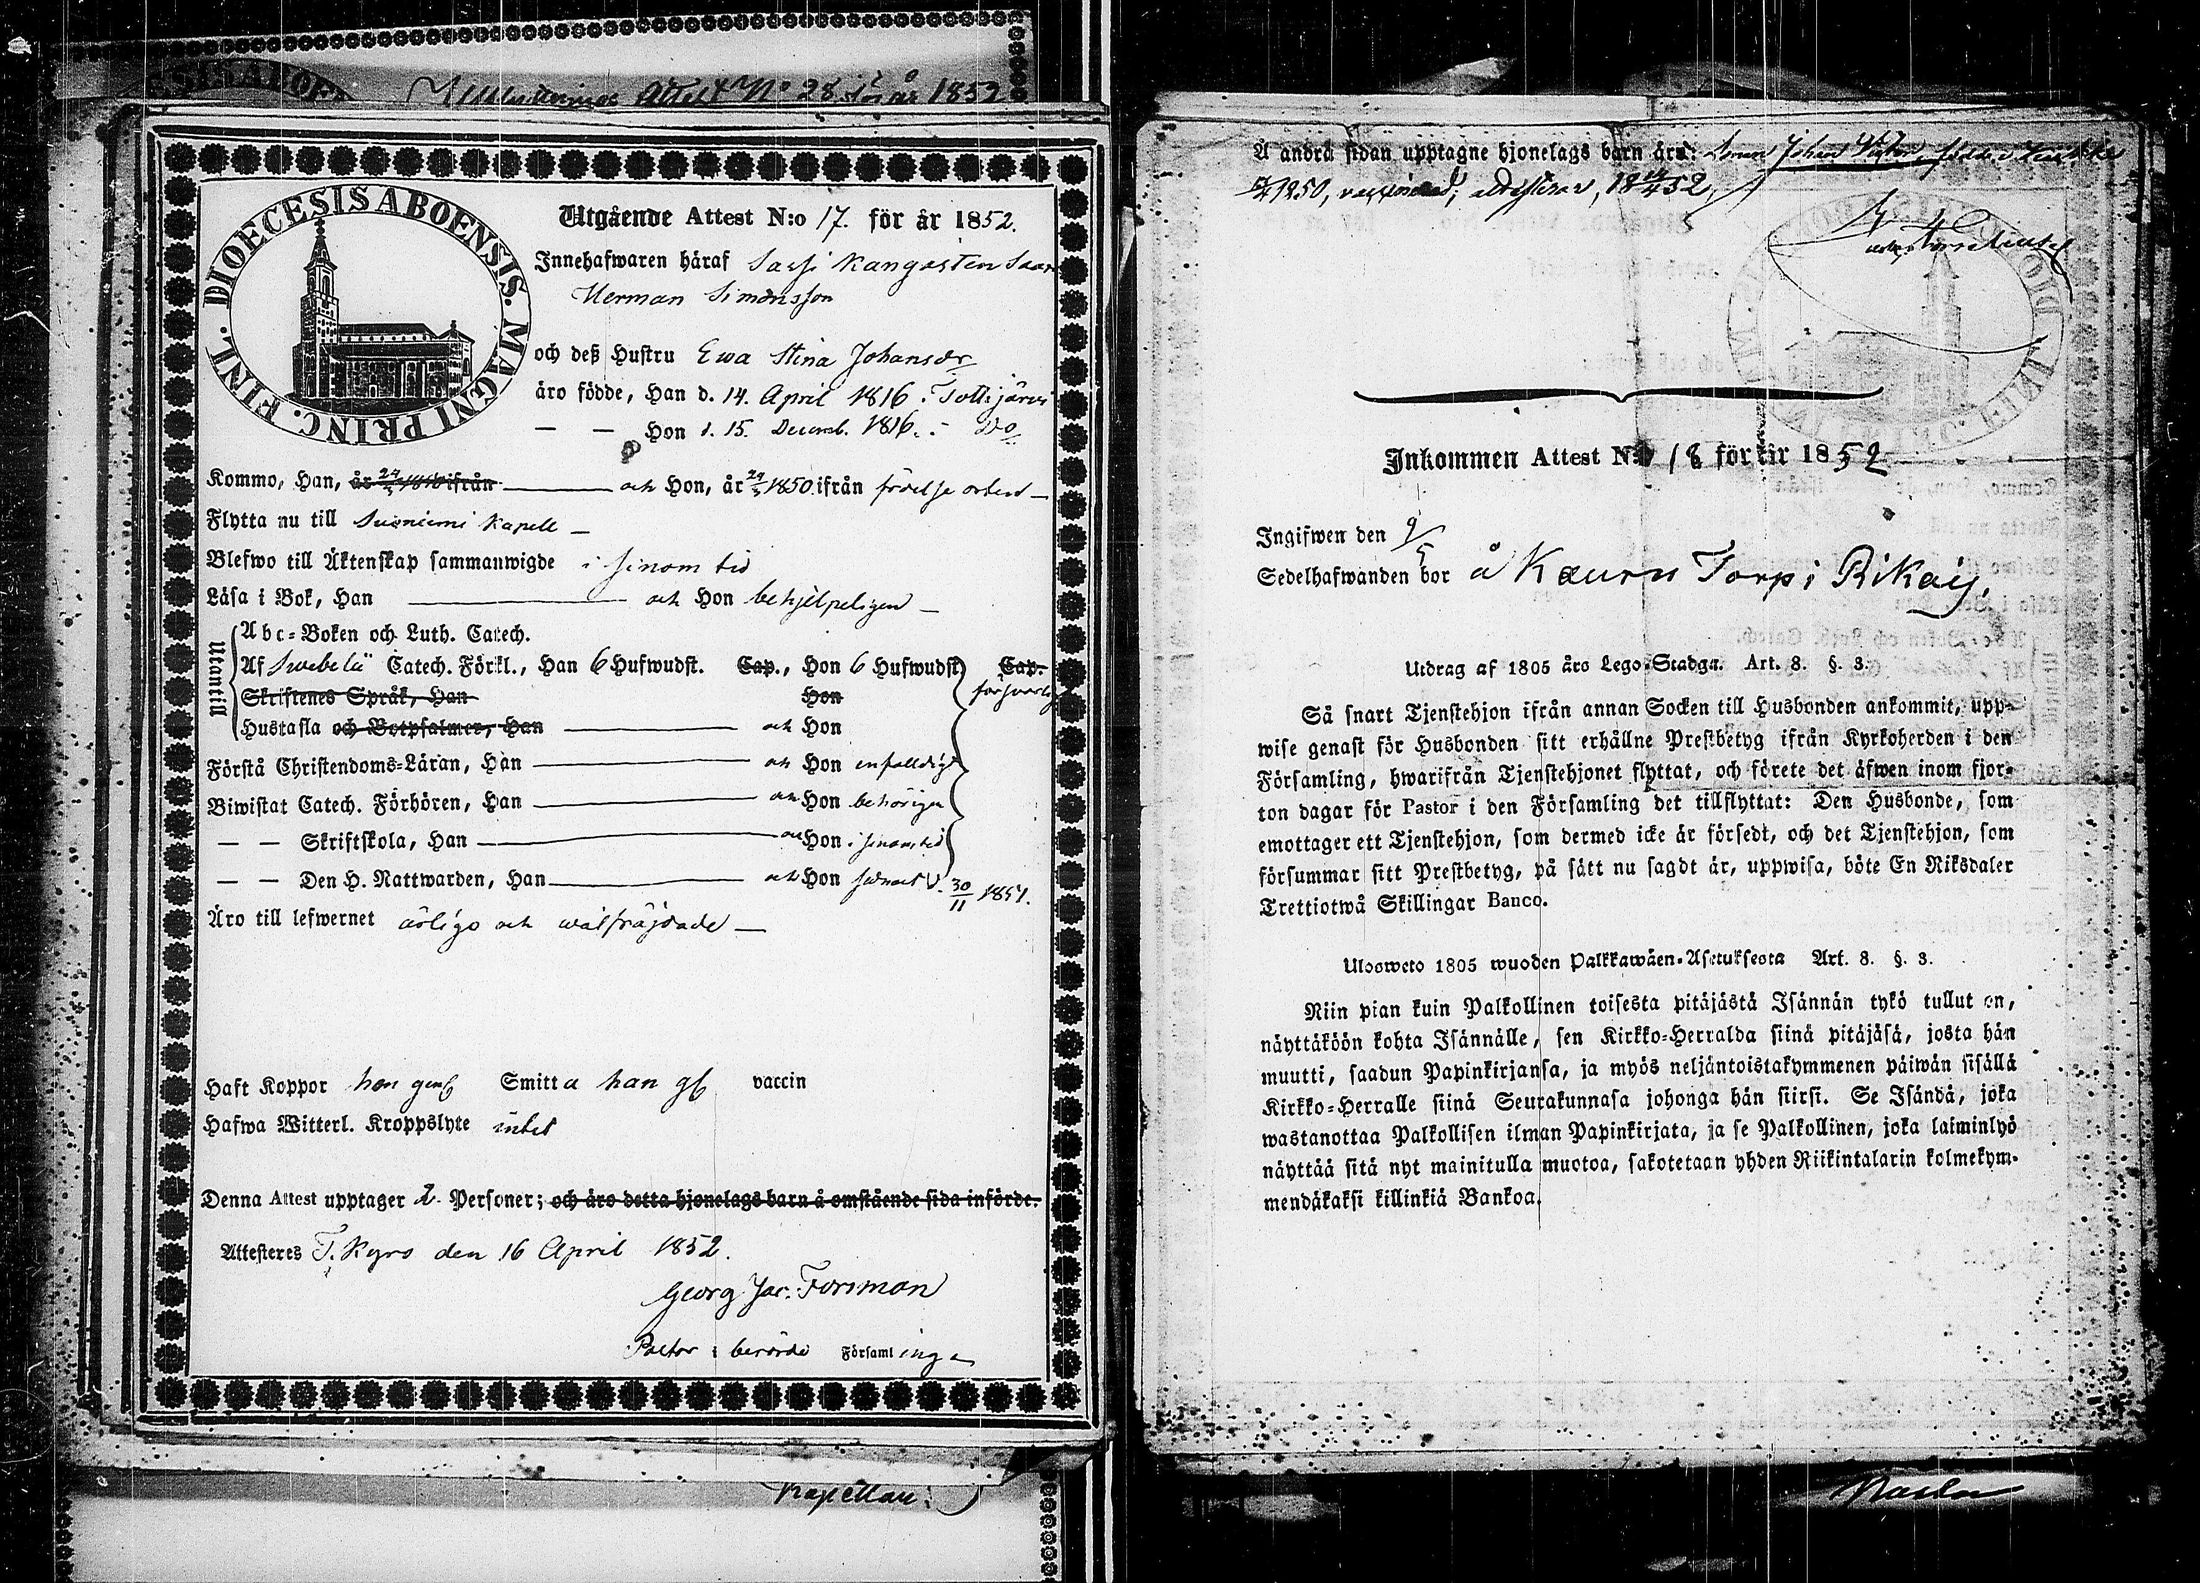 Utgående Attest N:o 17. för år 1852.
DIOECESIS ABOENSIS. MAGNI PRINC. FINL.
Innehafwaren häraf Sassi Kangasten
Herman Simonsson
och deß Hustru Ewa Stina Johansdr
äro födde, Han d. 14. April 1816. Tottijärvi
— — Hon d. 15. Decemb. 1816. : Do
Kommo, Han, år 24/3 1850 ifrån — och Hon, år 24/3 1850 ifrån födelse orten —
Flytta nu till Suoniemi Kapell —
Blefwo till Äktenskap sammanwigde i sinom tid
Läsa i Bok, Han — och Hon behjelpeligen —
Utantill
Abc-Boken och Luth. Catech.
Af Swebelii Catech. Förkl., Han 6 Hufwudst. Cap., Hon 6 Hufwudst. Cap.
Skriftenes Språk, Han Hon försvarlig
Hustafla och Botpsalmer, Han — och Hon
Förstå Christendoms-Läran, Han — och Hon enfalldigt
Biwistat Catech. Förhören, Han — och Hon behörigen
— — Skriftskola, Han — och Hon i sinom tid
— — Den H. Nattwarden, Han — och Hon senast d. 30/11 1851.
Äro till lefwernet ärliga och wälfräjdade —
Haft Koppor hon Smitta han vaccin
Hafwa Witterl. Kroppslyte intet
Denna Attest upptager 2 Personer; och äro detta hjonelags barn å omstående sida införde.
Attesteres T. Kyro den 16 April 1852.
Georg Jac. Forsman
Pastor i berörde Församlingen
Attest No 28 för år 1852
Kapellan.
Å andra sidan upptagne hjonelags barn äro: Sonen Johan Victor, född i
1850, vaccinerad; attesterar, 18 16/4 52,
Inkommen Attest N:o 18 för år 1852
Ingifwen den 9/5
Sedelhafwanden bor å Kauru Torp i Rikaij,
Utdrag af 1805 års Lego-Stadga. Art. 8. §. 3.
Så snart Tjenstehjon ifrån annan Socken till Husbonden ankommit, upp-
wise genast för Husbonden sitt erhållne Prestbetyg ifrån Kyrkoherden i den
Församling, hwarifrån Tjenstehjonet flyttat, och förete det äfwen inom fjor-
ton dagar för Pastor i den Församling det tillflyttat: Den Husbonde, som
emottager ett Tjenstehjon, som dermed icke är försedt, och det Tjenstehjon, som
försummar sitt Prestbetyg, på sätt nu sagdt är, uppwisa, böte En Riksdaler
Trettiotwå Skillingar Banco.
Ulosweto 1805 wuoden Palkkawäen-Asetuksesta Art. 8. §. 3.
Niin pian kuin Palkollinen toisesta pitäjästä Isännän tykö tullut on,
näyttäköön kohta Isännälle, sen Kirkko-Herralda siinä pitäjäsä, josta hän
muutti, saadun Papinkirjansa, ja myös neljäntoistakymmenen päiwän sisällä
Kirkko-Herralle siinä Seurakunnasa johonga hän siirsi. Se Isändä, joka
wastanottaa Palkollisen ilman Papinkirjata, ja se Palkollinen, joka laiminlyö
näyttää sitä nyt mainitulla muotoa, sakotetaan yhden Riikintalarin kolmekym-
mendäkaksi killinkiä Bankoa.